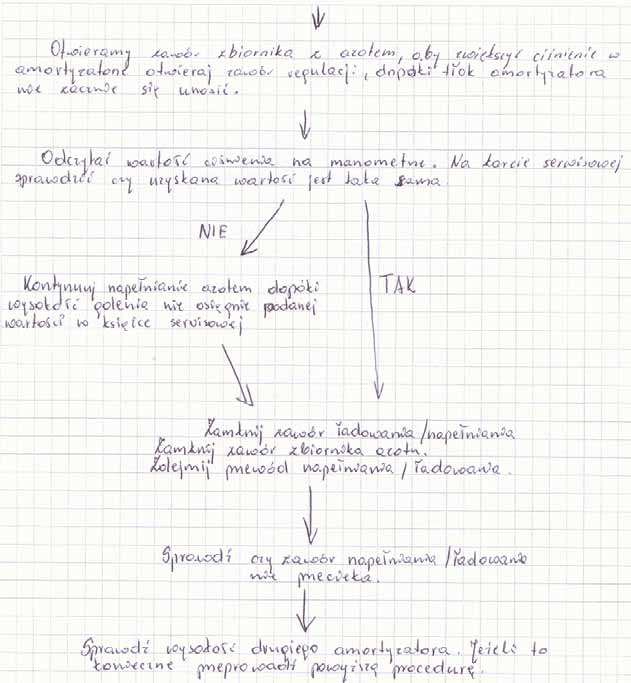 Otwieramy zawór zbiornika z azotem, aby zwiększyć ciśnienie w
amortyzatorze otwieraj zawór regulacji, dopóki tłok amortyzatora
nie zacznie się unosić.
Odczytać wartość ciśnienia na manometrze. Na karcie serwisowej
sprawdzić czy uzyskana wartość jest taka sama
NIE
TAK
Kontynuuj napełnianie azotem dopóki
wysokość golenia nie osięgnie podanej
wartości w księżce serwisowej
Zamknij zawór ładowania/napełniania
Zamknij zawór zbiornika azotu.
Zdejmij przewód napełniania/ładowania.
Sprawdź czy zawór napełniania/ładowania
nie przecieka.
Sprawdź wysokość drugiego amortyzatora. Jeżeli to
konieczne przeprowadź powyższą procedurę.